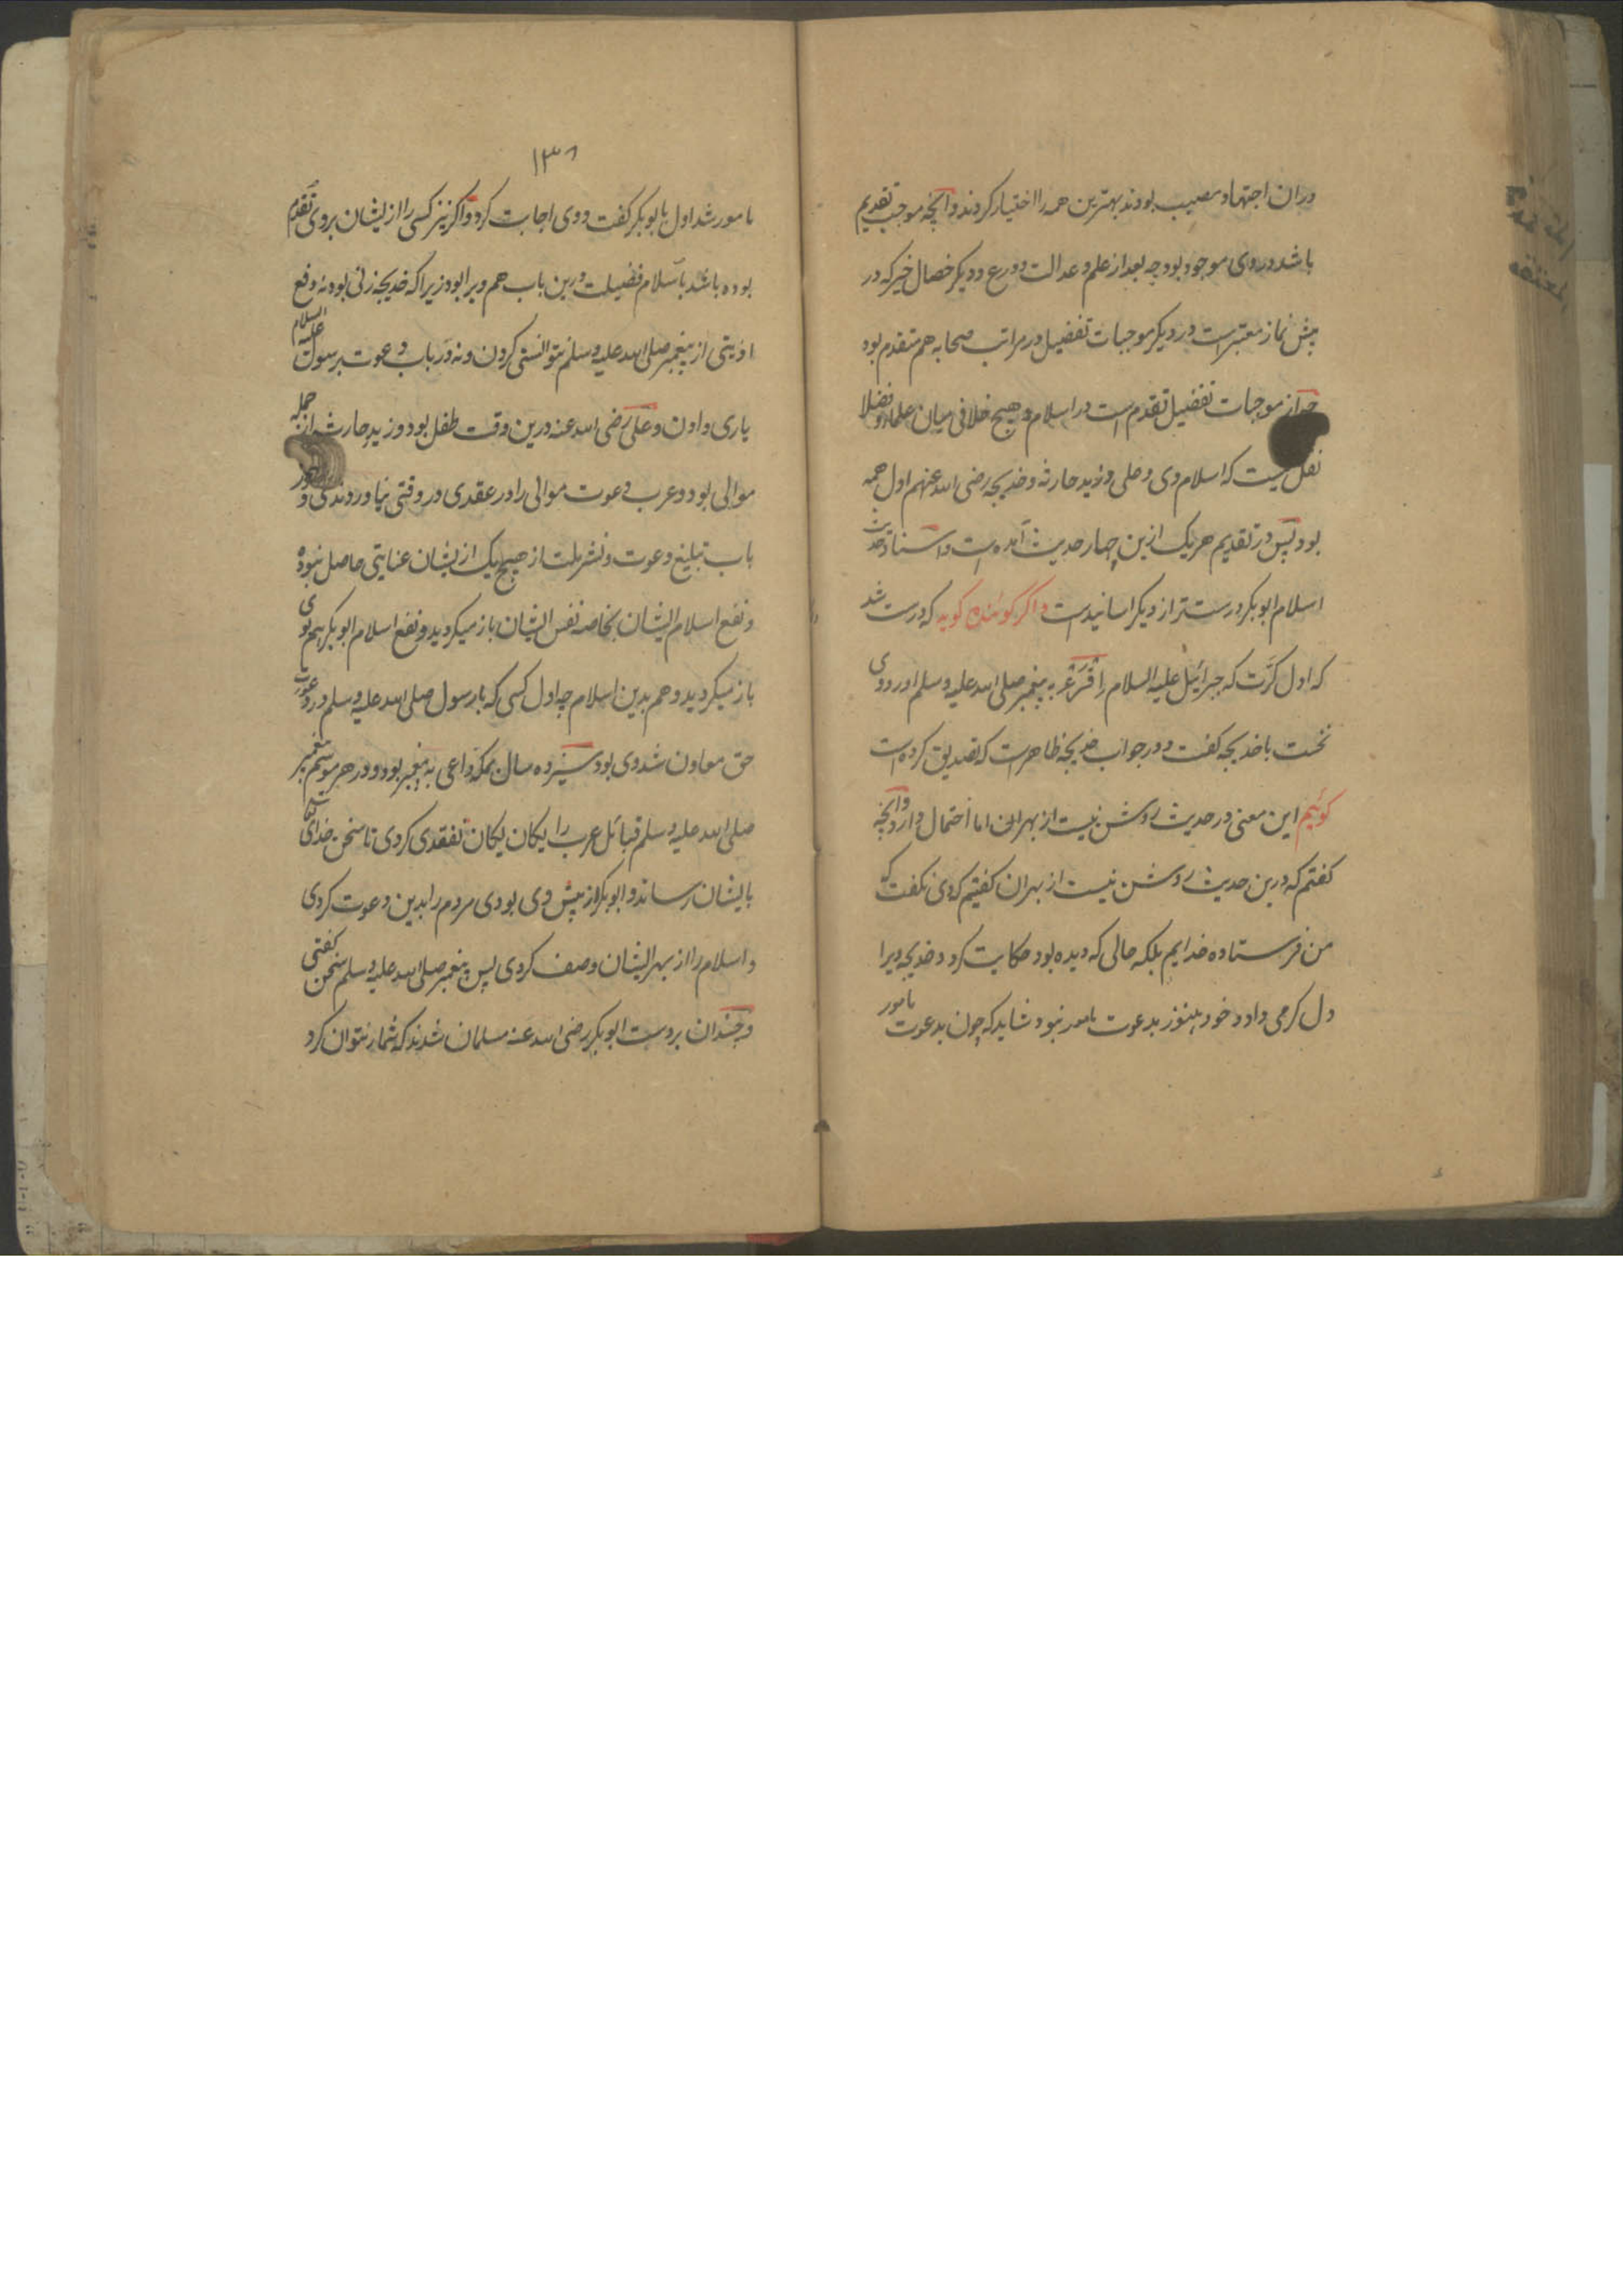 دران اجتهاد مصیب بودند بهترین همه را اختیار کردند و آنچه موجب تقدیم
باشد در وی موجود بود چه بعد از علم و عدالت و ورع و دیگر خصال خیر که در
پیش نماز معتبرست در دیگر موجبات تفضیل در مراتب صحابه هم متقدم بود
از موجبات تفضیل تقدم است در اسلام و هیچ خلافی میان علما و فضلا
نقل نیست که اسلام وی و علی و زید حارثه و خدیجه رضی الله عنهم اول همه
بود پس در تقدیم هریک ازین چهار حدیث آمده است و اسناد حدیث
اسلام ابوبکر درست تر از دیگر اسانیدست و اگر گوئنده گوید که درست شد
که اول کرّت که جبرائیل علیه السلام اِقْرَءْ به پیغمبر صلی الله علیه وسلم اورد وی
نخست با خدیجه گفت و در جواب خدیجه ظاهرست که تصدیق کرده است
گوئیم این معنی در حدیث روشن نیست از بهر ان اما احتمال دارد و آنچه
گفتم که درین حدیث روشن نیست از بهر ان گفتیم که وی نگفت که
من فرستاده خدایم بلکه حالی که دیده بود حکایت کرد و خدیجه ویرا
دل گرمی داد و خود هنوز بدعوت مامور نبود شاید که چون بدعوت مامور
۱۳۸
مامور شد اول با ابوبکر گفت و وی اجابت کرد و اگر نیز کسی را از ایشان بر وی تقدم
بوده باشد باسلام فضیلت درین باب هم ویرا بود زیرا که خدیجه زنی بود نه دفع
اذیتی از پیغمبر صلی الله علیه وسلم توانستی کردن و نه در باب دعوت بر رسول علیه السلام
یاری دادن و علی رضی الله عنه درین وقت طفل بود و زید حارث از جمله
موالی بود و عرب دعوت موالی را در عقدی در وقتی نیاوردندی و در
باب تبلیغ دعوت و نشر ملت از هیچ یک از ایشان عنایتی حاصل نبوده
و نفع اسلام ایشان بخاصه نفس ایشان باز میگردید و نفع اسلام ابوبکر هم بوی
باز میگردید و هم بدین اسلام چه اول کسی که با رسول صلی الله علیه وسلم در دعوت
حق معاون شد وی بود سیزده سال بمکه داعی به پیغمبر بود و در هر موسم پیغمبر
صلی الله علیه وسلم قبائل عرب را یکان یکان تفقدی کردی تا سخن خدای تعالی
بایشان رساند و ابوبکر از پیش وی بودی مردم را بدین دعوت کردی
و اسلام را از بهر ایشان وصف کردی پس پیغمبر صلی الله علیه وسلم سخن گفتی
و چندان بر دست ابوبکر رضی الله عنه مسلمان شدند که شمار نتوان کرد